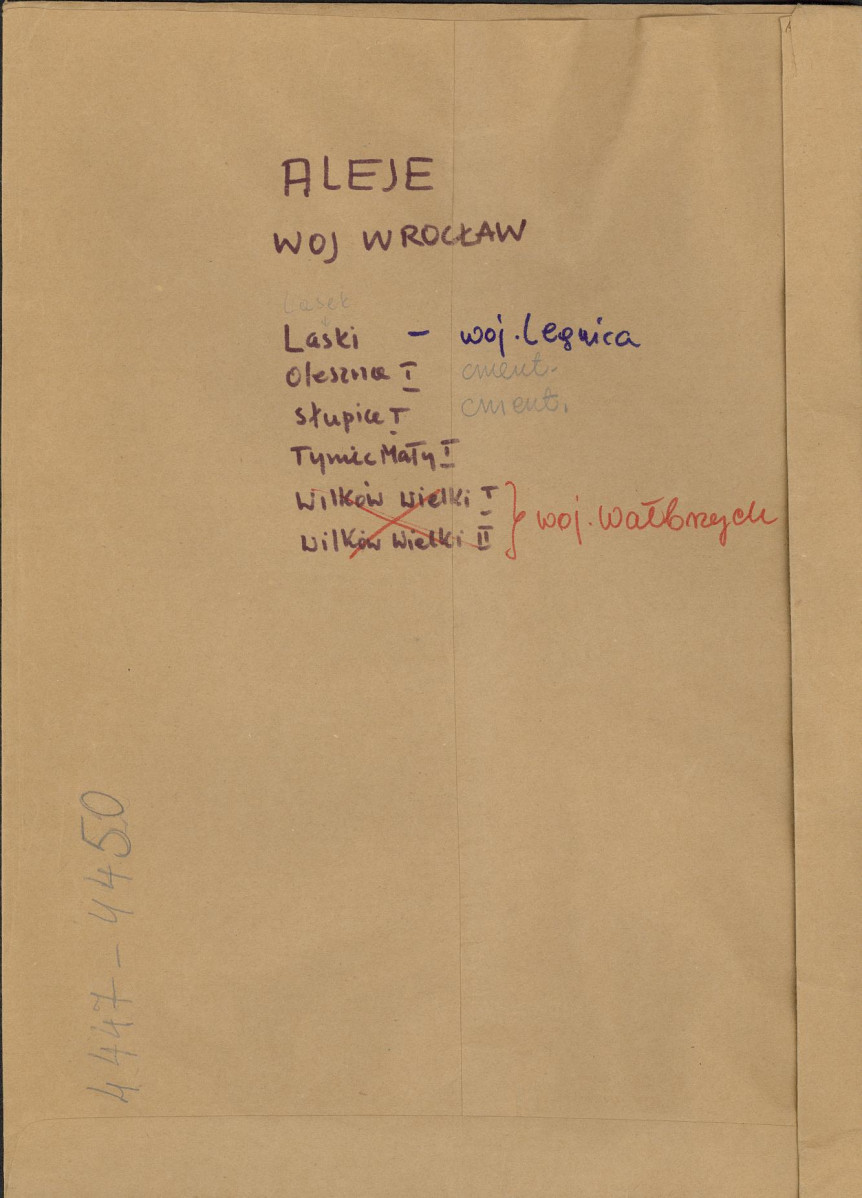 ALEJE
WOJ WROCŁAW
Lasek
Laski – woj. Legnica
Olesznica I cment.
Słupice I cment.
Tyniec Mały I
Wilków Wielki I
Wilków Wielki II } woj. Wałbrzych
4447-4450